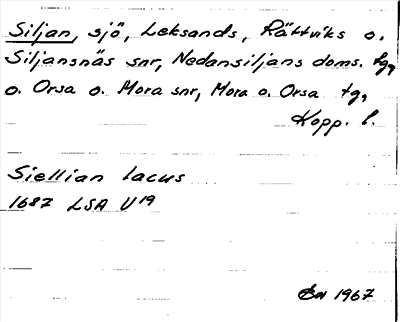 Siljan, sjö, Leksands, Rättviks o.
Siljansnäs snr, Nedansiljans doms. tg,
o. Orsa o. Mora snr, Mora o. Orsa tg,
Kopp. l.
Siellian lacus
1687 LSA U19
1967